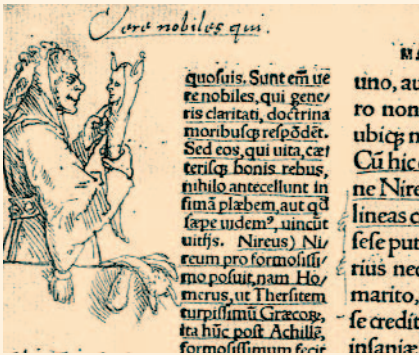 Vere nobiles qui.
quosuis. Sunt em̄ ue
re nobiles, qui gene
ris claritati, doctrina
moribusqꝫ respōdēt.
Sed eos, qui uita, cæt
terisqꝫ bonis rebus,
nihilo antecellunt in
fimā plæbem, aut qđ
sæpe uidemꝰ, uincūt
uitijs. Nireus) Ni/
reum pro formosissi/
mo posuit, nam Ho/
merus, ut Thersitem
turpissimū Græcorꝝ,
ita hūc post Achillē,
formosissimum fecit
uno, au
ro non
ubiqꝫ n
Cū hic
ne Nire
lineas c
sese put
rius nec
marito,
se credit
insaniæ